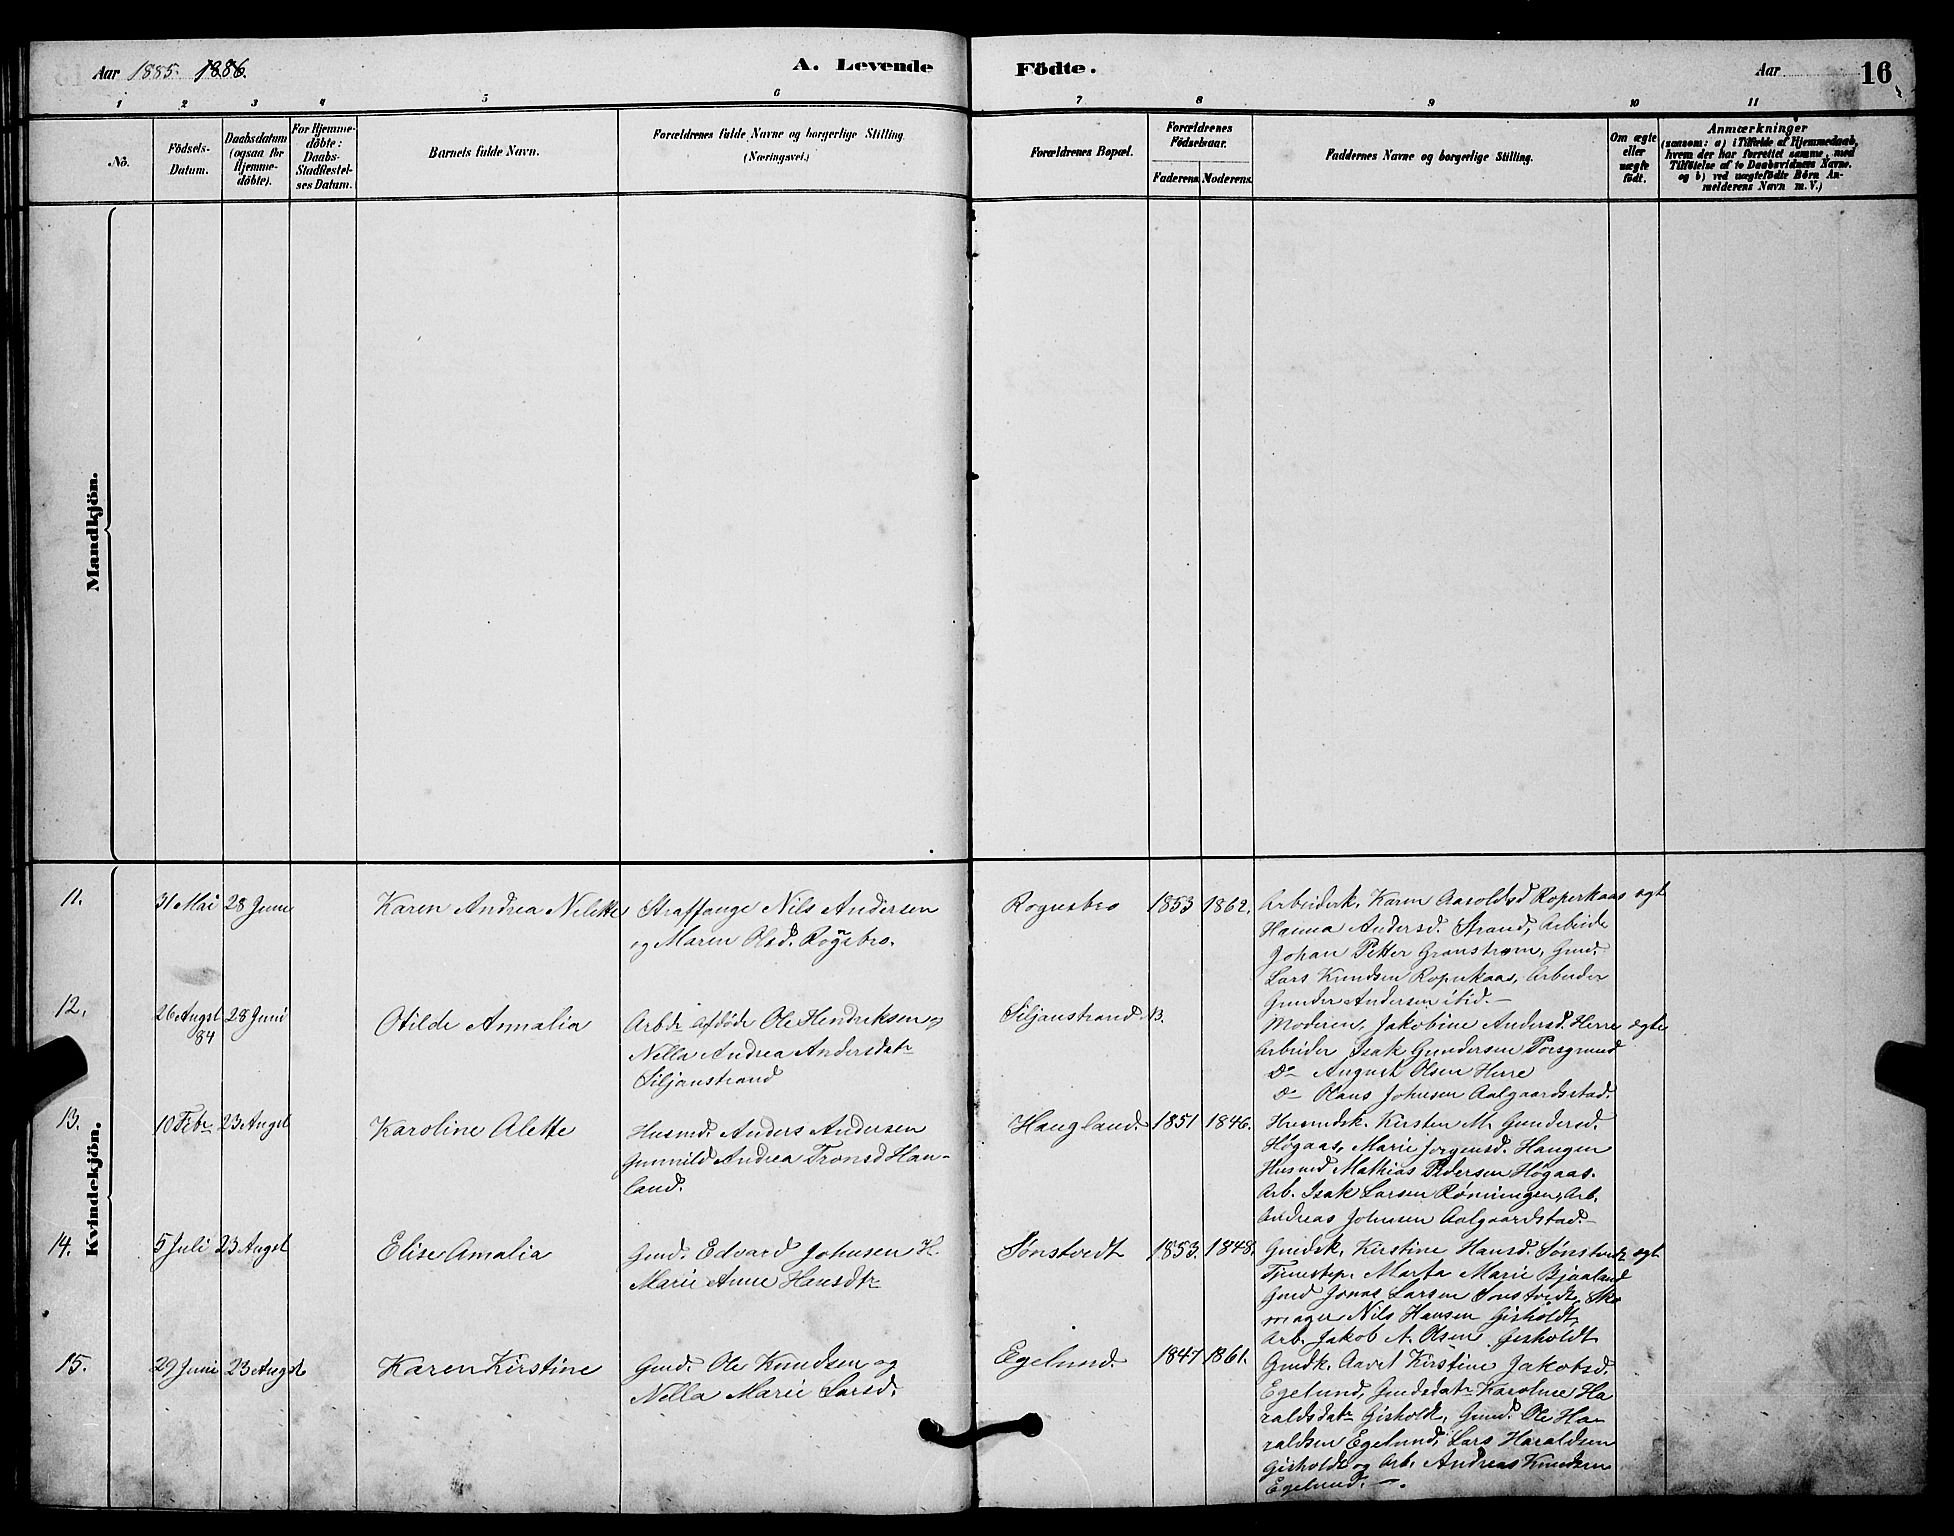 Aar 1885. 1886.
A. Levende
Födte.
Aar
16
1 2 3 4 5 6 7 8 9 10 11
No.
Födsels-
Datum.
Daabsdatum
(ogsaa for
Hjemme-
döbte).
For Hjemme-
döbte:
Daabs-
Stadfestel-
ses Datum.
Barnets fulde Navn.
Forældrenes fulde Navne og borgerlige Stilling.
(Næringsvei.)
Forældrenes Bopæl.
Forældrenes
Födselsaar.
Faderens. Moderens.
Faddernes Navne og borgerlige Stilling.
Om ægte
eller
uægte
födt.
Anmærkninger
(saasom: a) i Tilfælde af Hjemmedaab,
hvem der har forrettet samme, med
Tilföielse af to Daabsvidners Navne,
og b) ved uægtefödte Börn An-
melderens Navn m. V.)
Mandkjön.
Kvindekjön.
11.
31 Mai
28 Juni
Karen Andrea Nilette
Straffange Nils Andersen
og Maren Olsd. Rognsbro.
Rognsbro
1853
1862.
Arbeiderk. Karen Aasoldsd Roperkaas
Hanna Andersd. Strand, Arbeide
Johan Petter Granstrøm, Gmd.
Lars Knudsen Roperkaas, Arbeider
Gunder Andersen ibid. —
ægt
12.
26 Augst
84
28 Juni
Otilde Annalia
Arbdr afdøde Ole Hendriksen og
Nella Andrea Andersdatr
Siljanstrand
Siljanstrand
Moderen, Jakobine Andersd. Herre
Arbeider Isak Gundersen Porsgrund
Do August Olsen Herre
Do Olaus Johnsen Aalgaardsstad.
ægte
13.
10 Febr
23 Augst
Karoline Alette
Husmd. Anders Andersen
Gunnild Andrea Tronsd Hau-
land.
Haugland.
1851
1846.
Husmdsk. Kirsten M. Gundersd.
Høgaas, Marie Jørgensd. Haugen
Husmd Mathias Pedersen Høgaas.
Arb. Isak Larsen Rønningen, Arb.
Andreas Johnsen Aalgaardstad. —
14.
5 Juli
23 Augst
Elise Amalia
Gmd. Edvard Johnsen H.
Marie Anne Hansdtr
Sønstvedt
1853.
1848.
Gmdsk, Kirstine Hansd. Sønstvedt
Tjenestep. Marta Marie Bjaaland
Gmd Jonas Larsen Sønstvedt, Sko
mager Nils Hansen Gisholdt,
Arb. Jakob A. Olsen Gisholdt
ægt
15.
29 Juni
23 Augst
Karen Kirstine
Gmd. Ole Knudsen og
Nella Marie Larsd.
Egelund.
1847
1861.
Gmdk. Aavet Kirstine Jakobsd.
Egelund, Gmdsdatr Karoline Ha
raldsdatr Gisholdt, Gmd. Ole Ha-
raldsen Egelund, Lars Haraldsen
Gisholdt og Arb. Andreas Knudsen
Egelund. —.